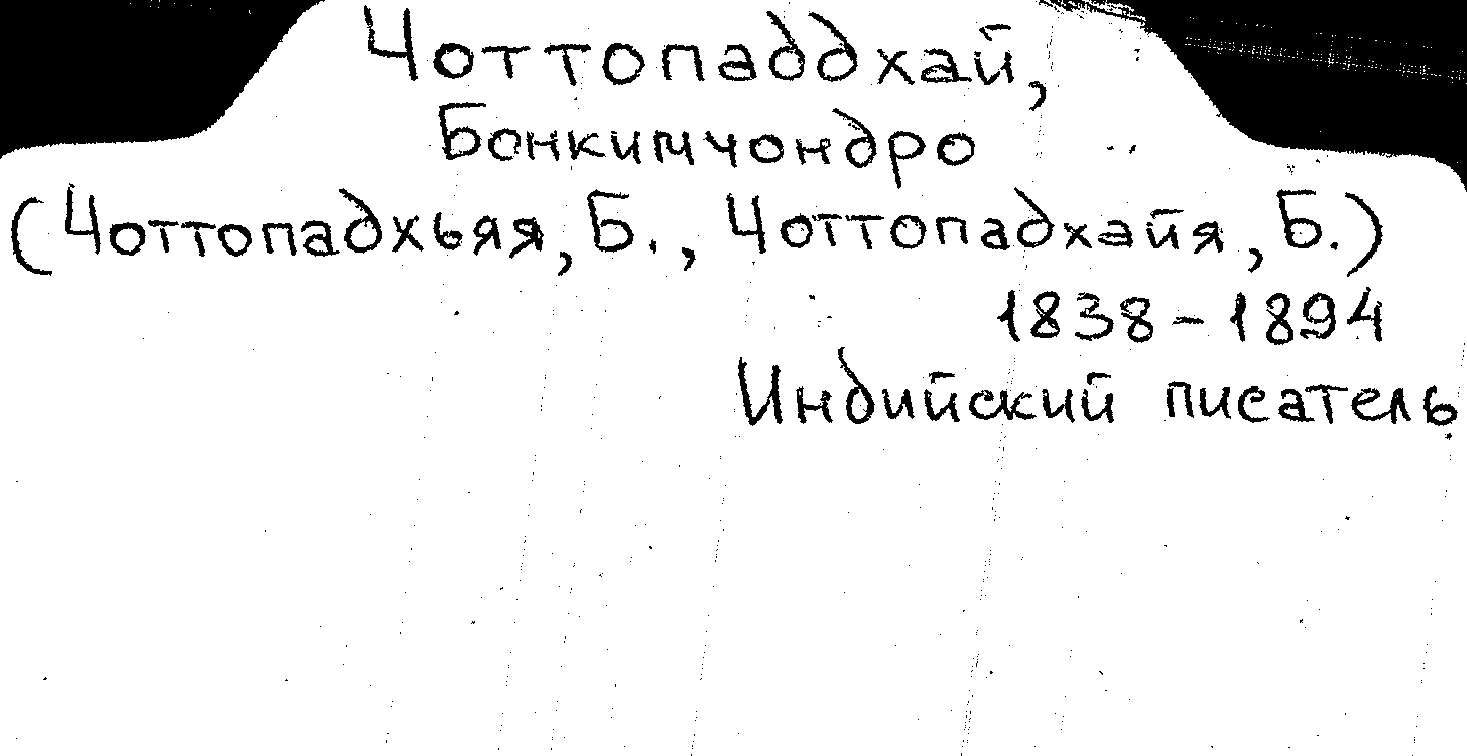 Чоттопаддхай,
Бонкимчондро
(Чоттопадхьяя, Б., Чоттопадхайя, Б.)
1838-1894
Индийский писатель